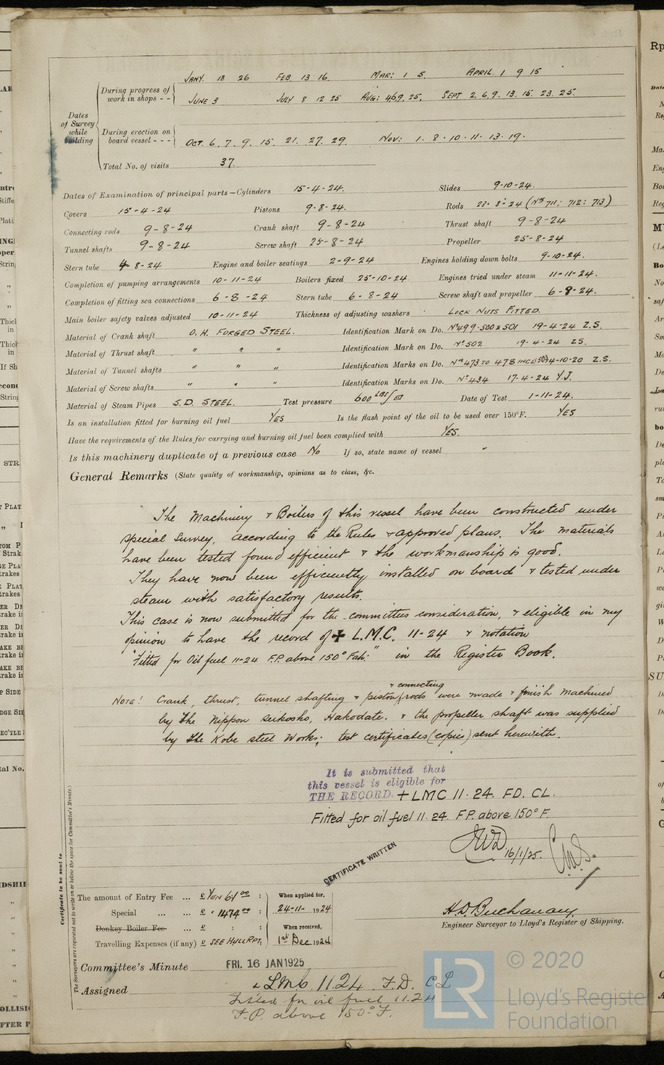 During progress of work in shops - - JANY. 18 26 FEB. 13 16. MAR: 1 5. APRIL. 1 9 15
JUNE 3 JULY 8 12 25 AUG: 4 6 9. 25. SEPT 2. 6. 9. 13. 15. 23. 25.
Dates of Survey while building
During erection on board vessel - - - OCT. 6. 7. 9. 15. 21. 27. 29. NOV: 1. 8. 10. 11. 13. 19.
Total No. of visits 37.
Dates of Examination of principal parts—Cylinders 15-4-24. Slides 9-10-24.
Covers 15-4-24 Pistons 9-8-24. Rods (Nos 711: 712: 713)
Connecting rods 9-8-24 Crank shaft 9-8-24 Thrust shaft 9-8-24
Tunnel shafts 9-8-24 Screw shaft 25-8-24 Propeller 25-8-24
Stern tube 4-8-24 Engine and boiler seatings 2-9-24 Engines holding down bolts 9-10-24.
Completion of pumping arrangements 10-11-24 Boilers fixed 25-10-24 Engines tried under steam 11-11-24.
Completion of fitting sea connections 6-8-24 Stern tube 6-8-24 Screw shaft and propeller 6-8-24.
Main boiler safety valves adjusted 10-11-24 Thickness of adjusting washers LOCK NUTS FITTED.
Material of Crank shaft O.H. FORGED STEEL. Identification Mark on Do. Nos 499-500 & 501 19-4-24 Z.S.
Material of Thrust shaft " " " Identification Mark on Do. No 502 19-4-24 ZS.
Material of Tunnel shafts " " " Identification Marks on Do. Nos 473 TO 478 Z.S.
Material of Screw shafts " " " Identification Marks on Do. No 434 17-4-24 Y.J.
Material of Steam Pipes S.D. STEEL. Test pressure 600 LBS/□" Date of Test 1-11-24.
Is an installation fitted for burning oil fuel YES Is the flash point of the oil to be used over 150°F. YES
Have the requirements of the Rules for carrying and burning oil fuel been complied with YES.
Is this machinery duplicate of a previous case No If so, state name of vessel "
General Remarks (State quality of workmanship, opinions as to class, &c.
The Machinery & Boilers of this vessel have been constructed under
special Survey, according to the Rules & approved plans. The materials
have been tested found efficient & the workmanship is good.
They have now been efficiently installed on board & tested under
steam with satisfactory results.
This case is now submitted for the committees consideration, & eligible in my
opinion to have the record of ✠ L.M.C. 11-24 & notation
"Fitted for Oil fuel 11-24 F.P. above 150° Fah:" in the Register Book.
& connecting
NOTE! Crank, thrust, tunnel shafting & piston rods were made & finish machined
by the Nippon Seikosho, Hakodate. & the propeller shaft was supplied
by the Kobe Steel Works; test certificates (copies) sent herewith.
It is submitted that
this vessel is eligible for
THE RECORD. + LMC 11.24. FD. CL.
Fitted for oil fuel 11.24. F.P. above 150°F.
16/1/25.
CERTIFICATE WRITTEN
Certificate to be sent to
The Surveyors are requested not to write on or below the space for Committee's Minute.
The amount of Entry Fee ... £ YEN 61.00 : When applied for,
Special ... ... £ " 1474.00 : 24-11- 1924
Donkey Boiler Fee £ : : When received,
Travelling Expenses (if any) £ SEE HULL RPT. 1st Dec 1924
H.D. Buchanan
Engineer Surveyor to Lloyd's Register of Shipping.
Committee's Minute FRI. 16 JAN 1925
Assigned + LMC. 11.24. F.D. C.L
Fitted for oil fuel 11.24
F.P. above 150°F.
LR © 2020
Lloyd's Register
Foundation